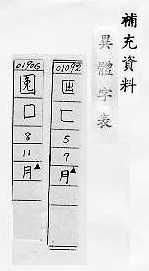 補充資料
異體字表
01092
凷
匚
5
7
月▲
01906
囗
8
11
月▲